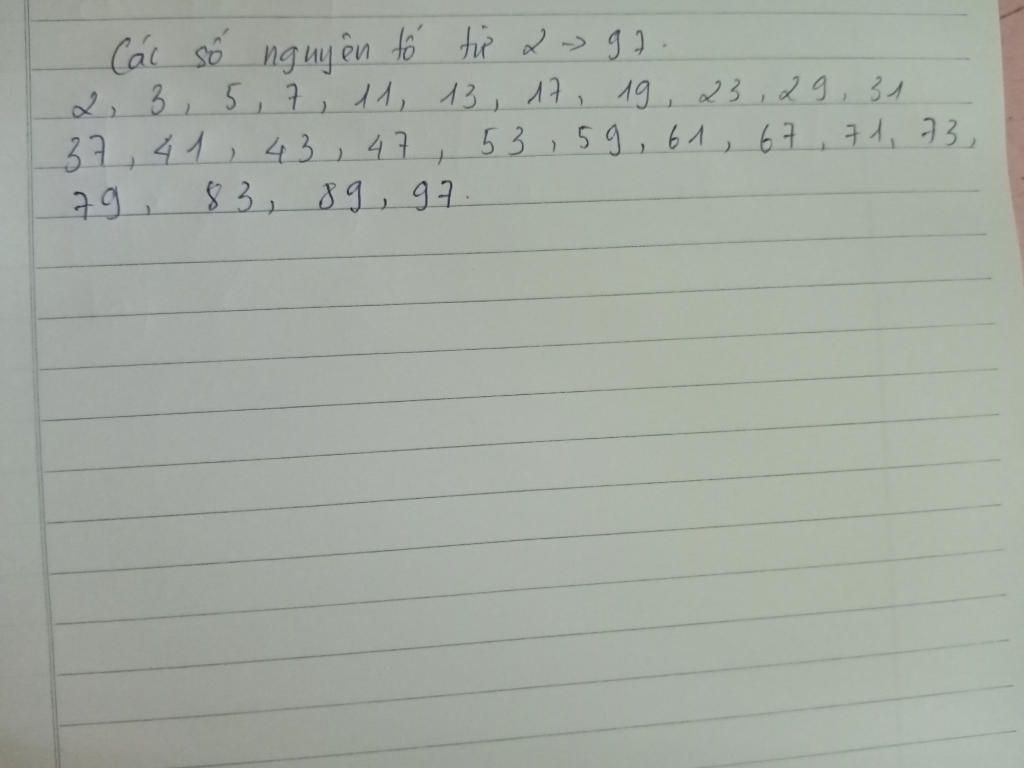 Các số nguyên tố từ 2 → 97.
2, 3, 5, 7, 11, 13, 17, 19, 23, 29, 31
37, 41, 43, 47, 53, 59, 61, 67, 71, 73,
79, 83, 89, 97.